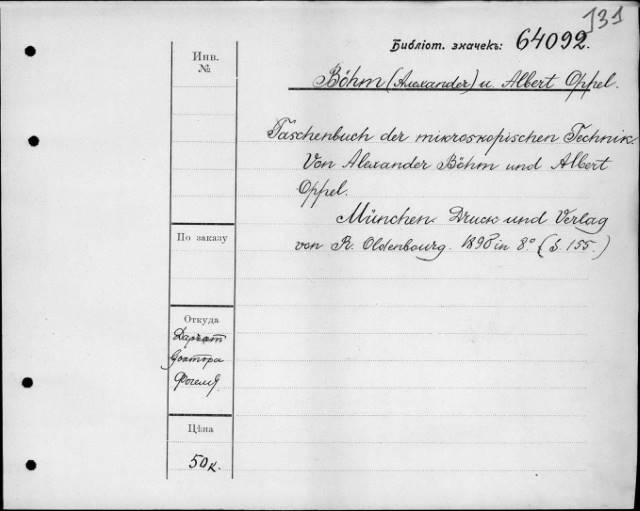 131
Библіот. значекъ: 64092.
Böhm (Alexander) u. Albert Oppel.
Taschenbuch der mikroskopischen Technik.
Von Alexander Böhm und Albert
Oppel.
München. Druck und Verlag
von R. Oldenbourg. 1890 in 8.° (S. 155.)
Инв.
№
По заказу
Откуда
доктора
Фогеля
Цѣна
50 к.